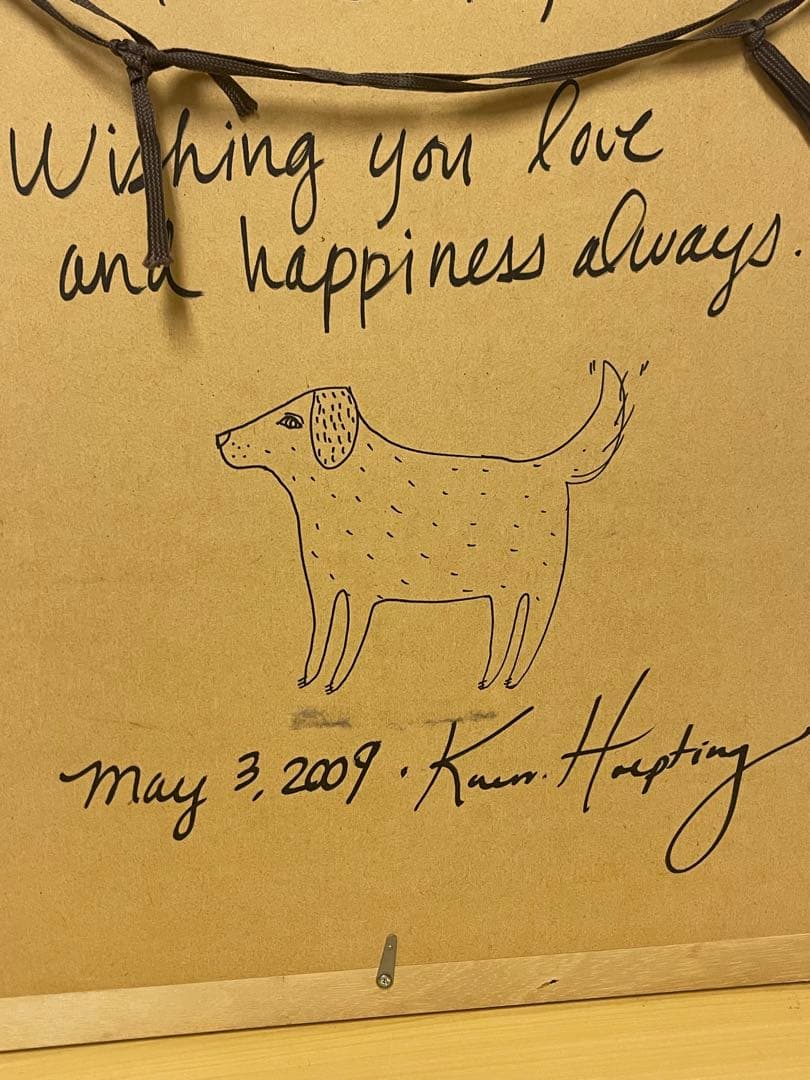 Wishing you love
and happiness always.
May 3, 2009 · Karen Hoepting